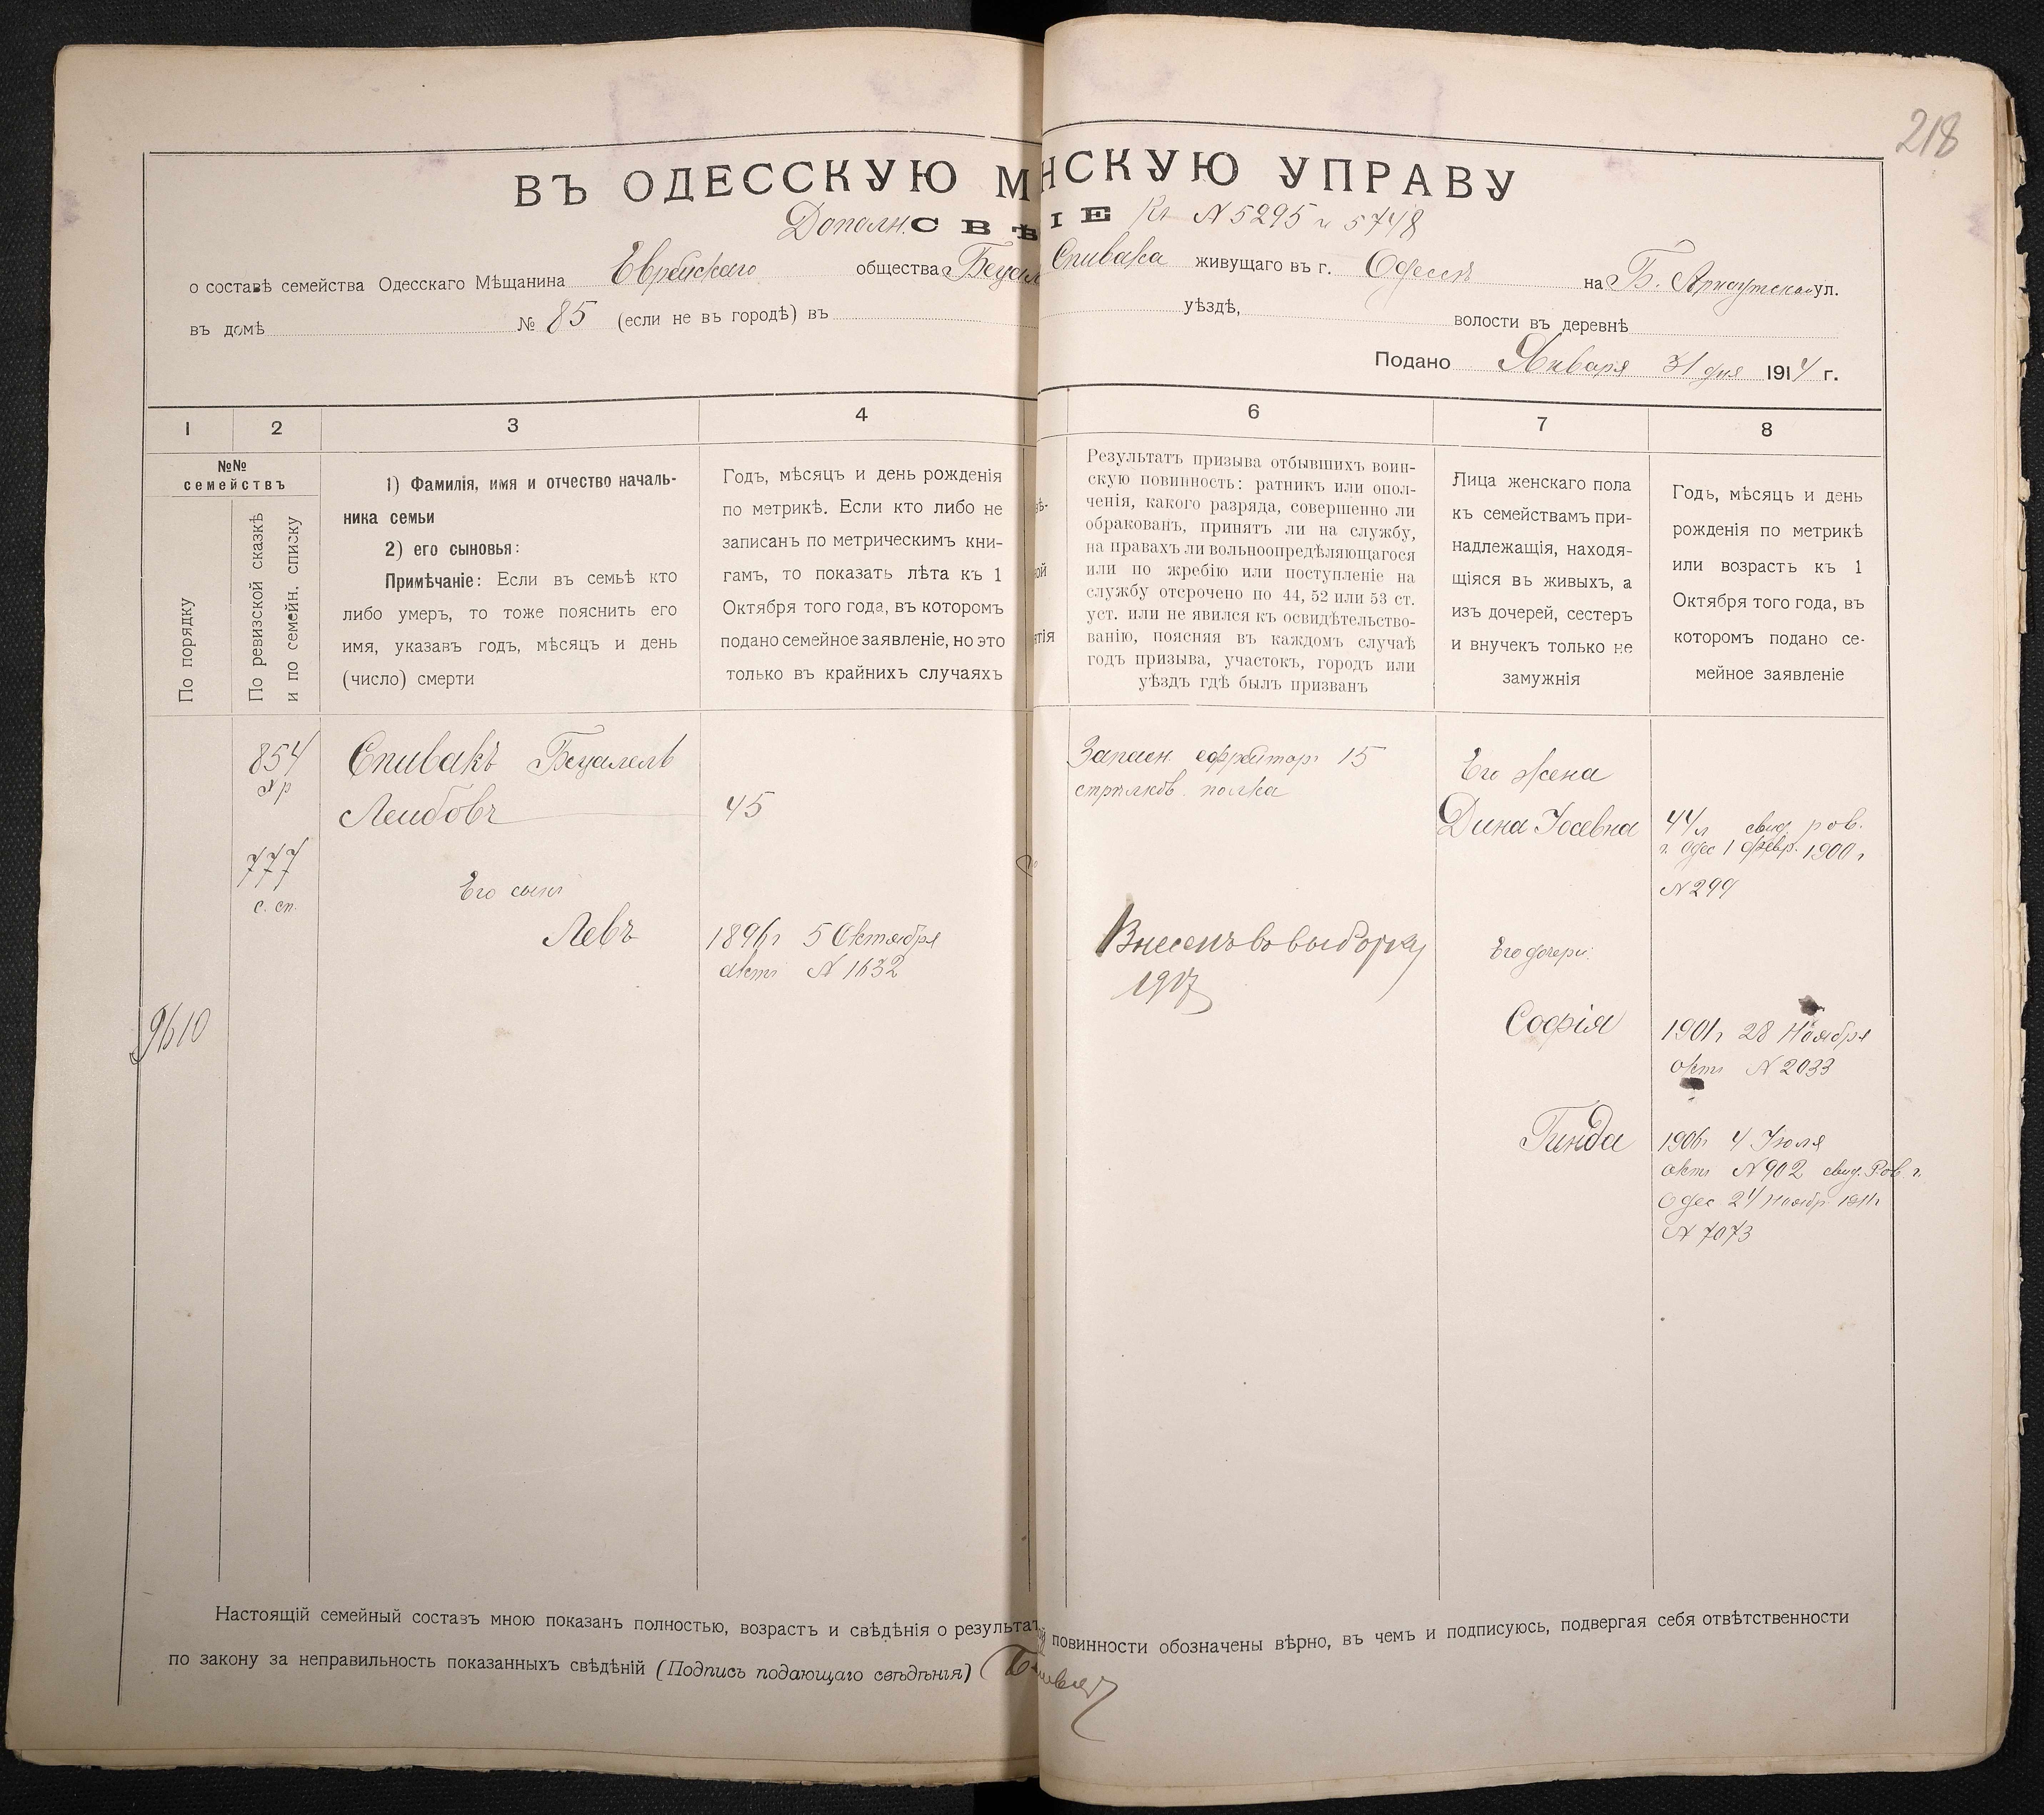 218
ВЪ ОДЕССКУЮ М НСКУЮ УПРАВУ
Дополн. СВѢ IE Къ № 5295 и 5748
о составѣ семейства Одесскаго Мѣщанина Еврейскаго общества Бецал Спивака живущаго въ г. Одессѣ на Б. Арнаутской ул.
въ домѣ № 85 (если не въ городѣ) въ уѣздѣ, волости въ деревнѣ
Подано Января 31 дня 1914 г.
1 2 3 4 6 7 8
№№
семействъ
По порядку
По ревизской сказкѣ
и по семейн. списку
1) Фамилія, имя и отчество началь-
ника семьи
2) его сыновья:
Примѣчаніе: Если въ семьѣ кто
либо умеръ, то тоже пояснить его
имя, указавъ годъ, мѣсяцъ и день
(число) смерти
Годъ, мѣсяцъ и день рожденія
по метрикѣ. Если кто либо не
записанъ по метрическимъ кни-
гамъ, то показать лѣта къ 1
Октября того года, въ которомъ
подано семейное заявленіе, но это
только въ крайнихъ случаяхъ
ѣ-
ной
ятія
Результатъ призыва отбывшихъ воин-
скую повинность: ратникъ или опол-
ченія, какого разряда, совершенно ли
обракованъ, принятъ ли на службу,
на правахъ ли вольноопредѣляющагося
или по жребію или поступленіе на
службу отсрочено по 44, 52 или 53 ст.
уст. или не явился къ освидѣтельство-
ванію, поясняя въ каждомъ случаѣ
годъ призыва, участокъ, городъ или
уѣздъ гдѣ былъ призванъ
Лица женскаго пола
къ семействамъ при-
надлежащія, находя-
щіяся въ живыхъ, а
изъ дочерей, сестеръ
и внучекъ только не
замужнія
Годъ, мѣсяцъ и день
рожденія по метрикѣ
или возрастъ къ 1
Октября того года, въ
которомъ подано се-
мейное заявленіе
9610
854
№ р
777
с. сп.
Спивакъ Бецалель
Лейбовъ
45
Его сынъ
Левъ
1896 г 5 Октября
актъ № 1632
Запасн. ефрейторъ 15
стрѣлков. полка
Внесенъ въ выборку
1917
Его жена
Дина Іосевна
44 л свид. ров.
г. Одес 1 февр. 1900 г
№ 299
Его дочери:
Софія
1901 г 28 Ноября
актъ № 2033
Гинда
1906 г 4 Іюля
актъ № 902 свид. Ров. г.
Одес 24 Ноябр 1911 г
№ 7073
Настоящій семейный составъ мною показанъ полностью, возрастъ и свѣдѣнія о результат й повинности обозначены вѣрно, въ чемъ и подписуюсь, подвергая себя отвѣтственности
по закону за неправильность показанныхъ свѣдѣній (Подпись подающаго свѣдѣнія)